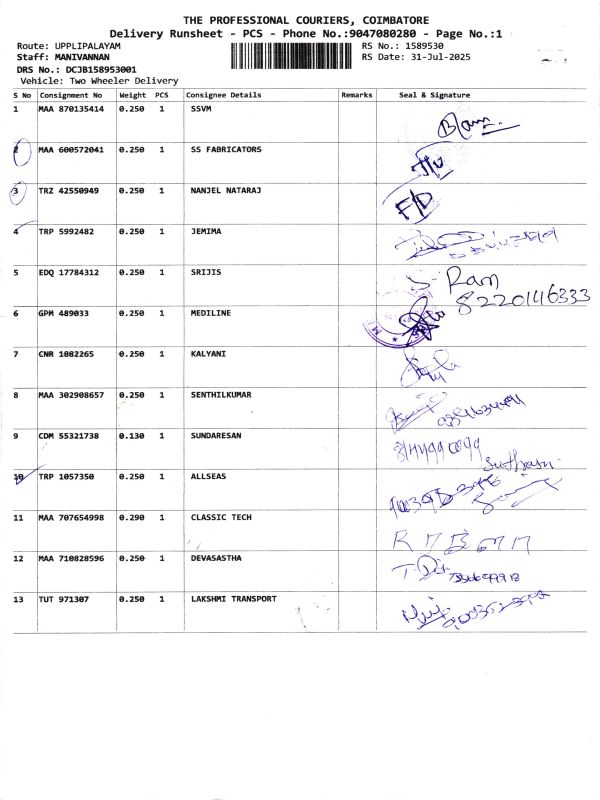 THE PROFESSIONAL COURIERS, COIMBATORE
Delivery Runsheet - PCS - Phone No.:9047080280 - Page No.:1
Route: UPPLIPALAYAM RS No.: 1589530
Staff: MANIVANNAN RS Date: 31-Jul-2025
DRS No.: DCJB158953001
Vehicle: Two Wheeler Delivery
S No Consignment No Weight PCS Consignee Details Remarks Seal & Signature
1 MAA 870135414 0.250 1 SSVM
2 MAA 600572041 0.250 1 SS FABRICATORS
3 TRZ 42550949 0.250 1 NANJEL NATARAJ F/D
4 TRP 5992482 0.250 1 JEMIMA
5 EDQ 17784312 0.250 1 SRIJIS Ram
8220146333
6 GPM 489033 0.250 1 MEDILINE
7 CNR 1082265 0.250 1 KALYANI
8 MAA 302908657 0.250 1 SENTHILKUMAR
9 CDM 55321738 0.130 1 SUNDARESAN
10 TRP 1057350 0.250 1 ALLSEAS
11 MAA 707654998 0.290 1 CLASSIC TECH
12 MAA 710828596 0.250 1 DEVASASTHA
13 TUT 971307 0.250 1 LAKSHMI TRANSPORT